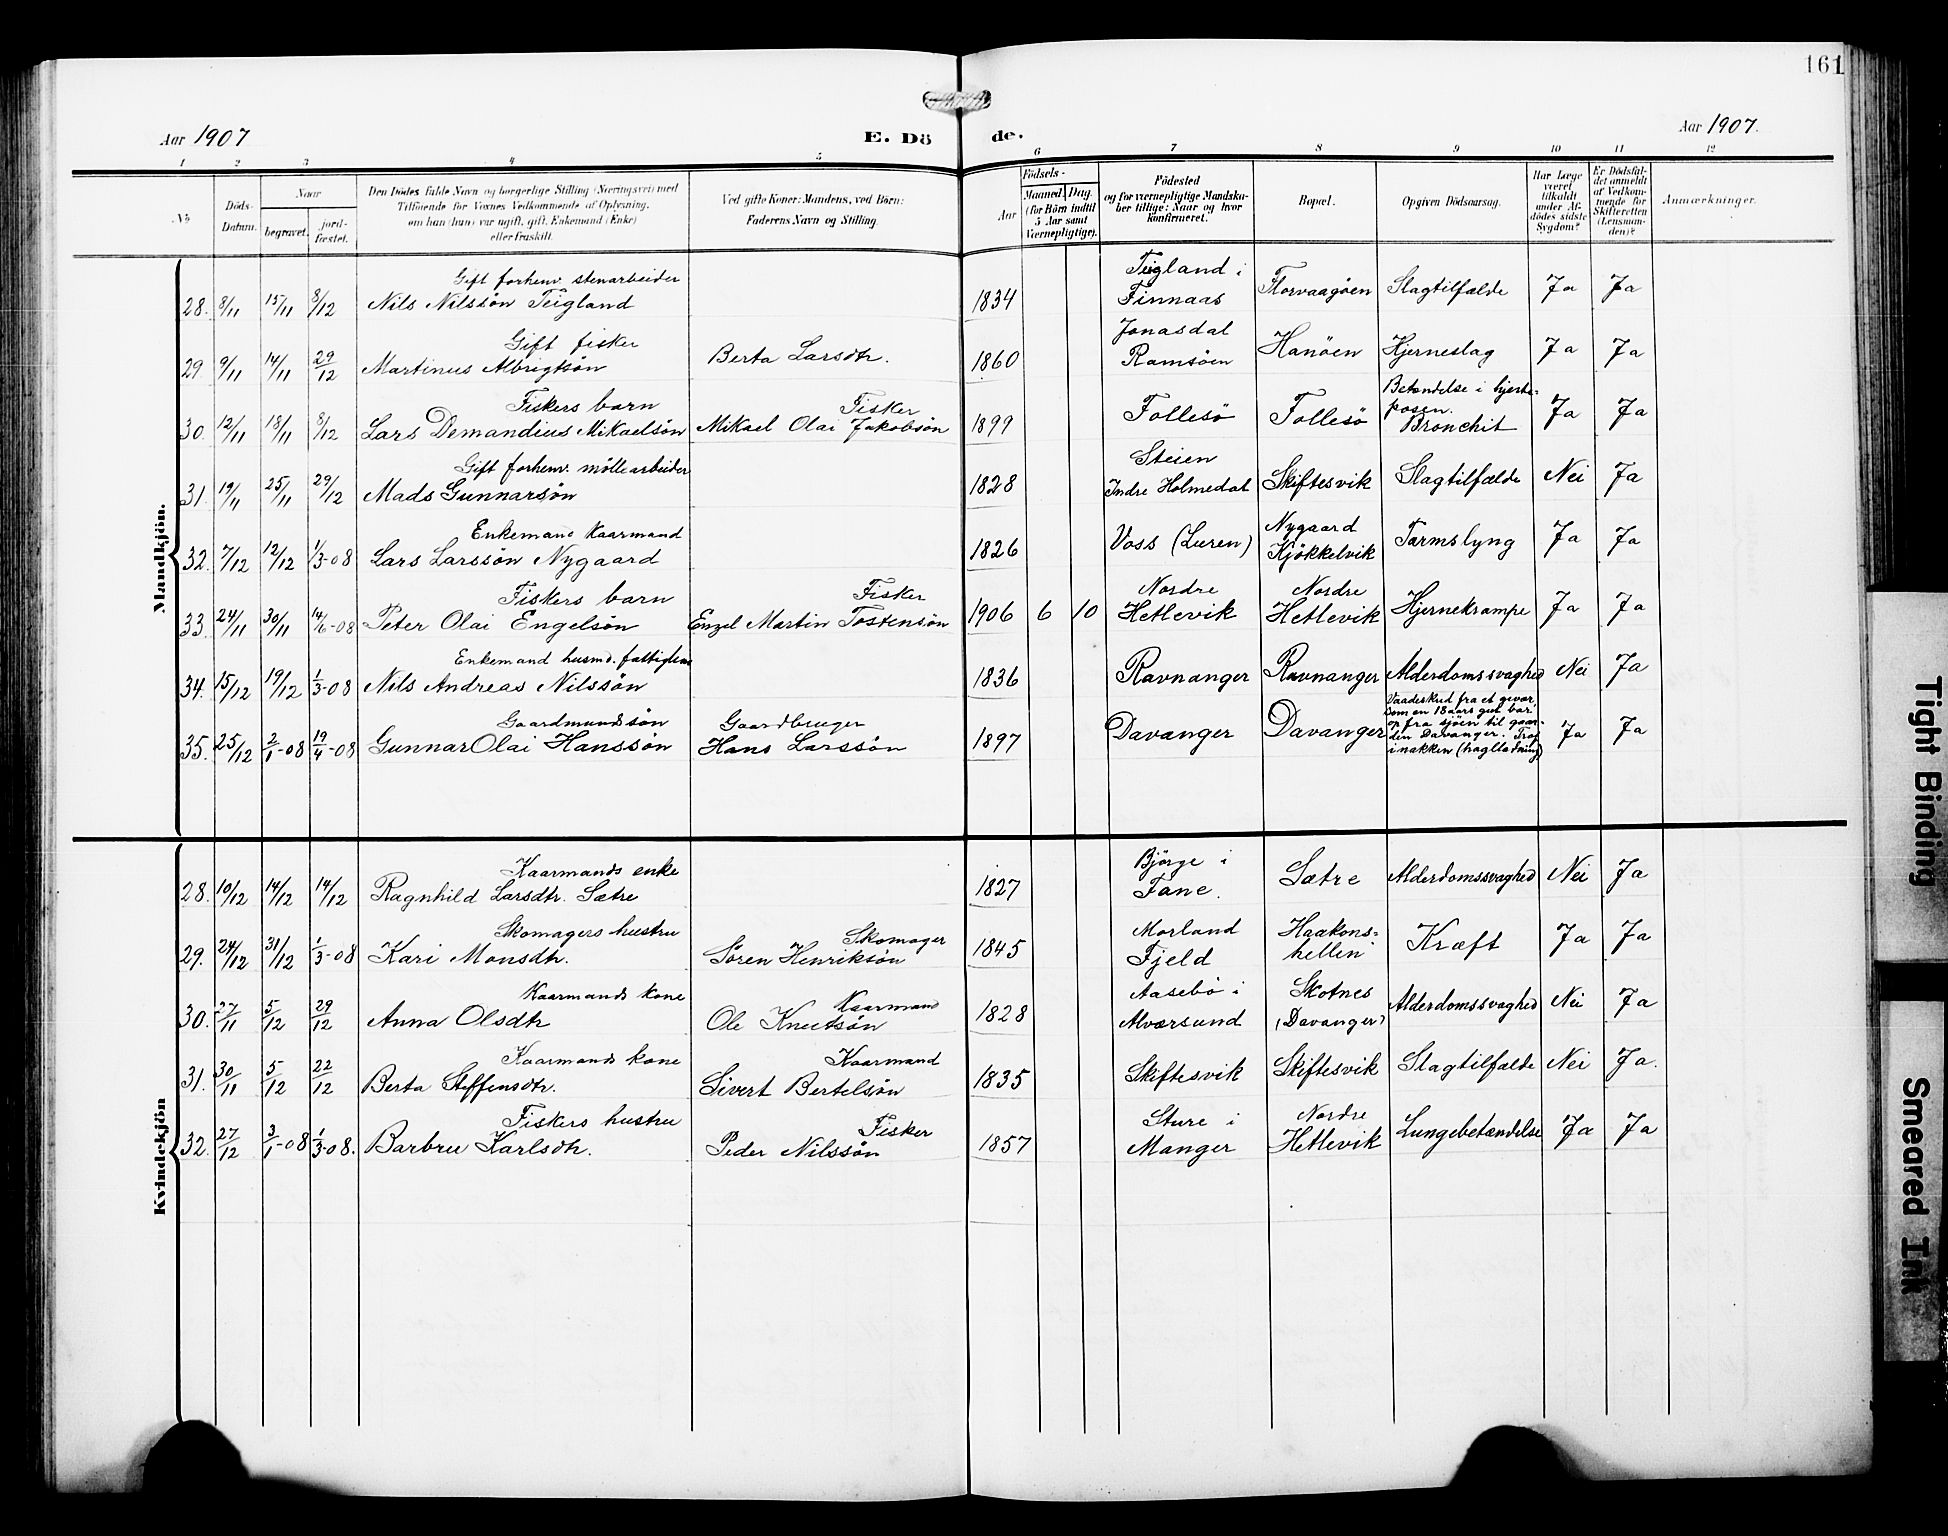 161
Aar 1907
E. Dö de.
Aar 1907.
1 2 3 4 5 6 7 8 9 10 11 12
No
Döds-
Datum.
Naar
begravet.
jord-
fæstet.
Den Dödes fulde Navn og borgerlige Stilling (Næringsvei) med
Tilföiende for Voxnes Vedkommende af Oplysning,
om han (hun) var ugift, gift, Enkemand (Enke)
eller fraskilt.
Ved gifte Koner: Mandens, ved Börn:
Faderens Navn og Stilling.
Födsels-
Aar
Maaned. Dag.
(for Börn indtil
5 Aar samt
Værnepligtige).
Födested
og for værnepligtige Mandska-
ber tillige: Naar og hvor
konfirmeret.
Bopæl.
Opgiven Dödsaarsag.
Har Læge
været
tilkaldt
under Af-
dödes sidste
Sygdom?
Er Dödsfal-
det anmeldt
af Vedkom-
mende for
Skifteretten
(Lensman-
den)?
Anmærkninger.
Mandkjön.
Gift forhenv. stenarbeider Teigland i
28. 8/11 15/11 8/12 Nils Nilssön Teigland 1834 Finnaas Florvaagöen Slagtilfælde Ja Ja
Gift fisker Jonasdal
29. 9/11 14/11 29/12 Martinus Albrigtsön Berta Larsdtr. 1860 Ramsöen Hanöen Hjerneslag Ja Ja
Fiskers barn Fisker Betændelse i hjerte-
posen.
30. 12/11 18/11 8/12 Lars Demandius Mikaelsön Mikael Olai Jakobsön 1899 Follesö Follesö Bronchit Ja Ja
Gift forhenv. möllearbeider Steien
31. 19/11 25/11 29/12 Mads Gunnarsön 1828 Indre Holmedal Skiftesvik Slagtilfælde Nei Ja
Enkemand Kaarmand Nygaard
32. 7/12 12/12 1/3-08 Lars Larssön Nygaard 1826 Voss (Luren) Kjökkelvik Tarmslyng Ja Ja
Fiskers barn Fisker Nordre Nordre
33. 24/11 30/11 14/6-08 Peter Olai Engelsön Engel Martin Tostensön 1906 6 10 Hetlevik Hetlevik Hjernekrampe Ja Ja
Enkemand husmd. fattiglem
34. 15/12 19/12 1/3-08 Nils Andreas Nilssön 1836 Ravnanger Ravnanger Alderdomssvaghed Nei Ja
Gaardmandssön Gaardbruger
35. 25/12 2/1-08 19/4-08 Gunnar Olai Hanssön Hans Larssön 1897 Davanger Davanger Ja Ja
Vaadeskud fra et gevær,
som en 18 aars gut bar
op fra sjöen til gaar-
den Davanger. Traf
i nakken (haglladning)
Kvindekjön
Kaarmands enke Björge i
28. 10/12 14/12 14/12 Ragnhild Larsdtr. Sætre 1827 Fane. Sætre Alderdomssvaghed Nei Ja
Skomagers hustru Skomager Morland Haakons=
29. 24/12 31/12 1/3-08 Kari Monsdtr. Sören Henriksön 1845 Fjeld hellen Kræft Ja Ja
Kaarmands kone Kaarmand Aasebö i Skotnes
30. 27/11 5/12 29/12 Anna Olsdtr Ole Knutsön 1828 Alværsund (Davanger) Alderdomssvaghed Nei Ja
Kaarmands kone Kaarmand
31. 30/11 5/12 22/12 Berta Steffensdtr. Sivert Bertelsön 1835 Skiftesvik Skiftesvik Slagtilfælde Nei Ja.
Fiskers hustru Fisker Sture i Nordre
32. 27/12 3/1-08 1/3-08. Barbru Karlsdtr. Peder Nilssön 1857 Manger Hetlevik Lungebetændelse Ja Ja
Tight Binding
Smeared Ink